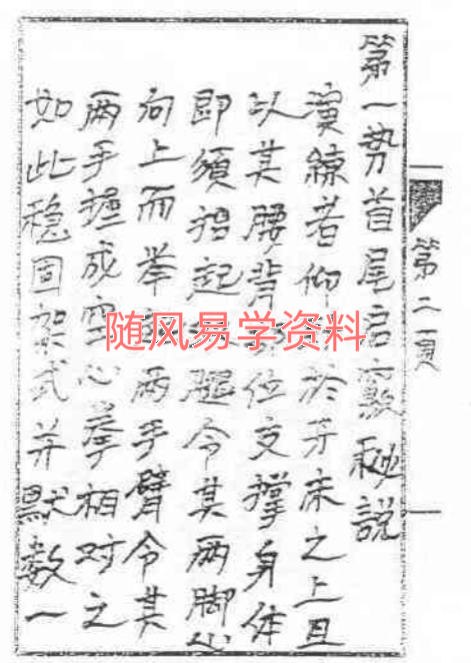 第二頁
第一势首尾启竅秘說
演練者仰於牙床之上且
以其腰背位支撑身体
即须招起腿令其两脚心
向上而举两手臂令其
两手握成空心拳相对之
如此稳固架式并默数一
随风易学资料